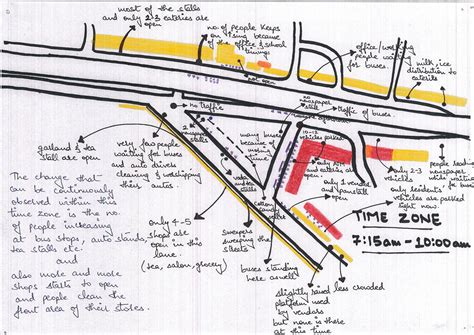 most of the stalls
and only 2-3 eateries are
open
no. of people keeps
on rising because
of the office & school
timings
not open
office/working
people waiting
for buses
milk, ice
distribution to
eateries
no traffic
no
newspaper
stall
traffic of buses
garland & tea
stall are
open
very few people
waiting for buses
and auto drivers
cleaning & worshipping
their autos.
many buses
because of
morning
timings
10-12
vehicles parked
only ATM
and eateries are
open
only 2 vendors
and panstall
open
only 2-3
vehicles
people reading
newspapers
while waiting
for buses
only residents'
vehicles are parked
light now
The change that
can be continuously
observed within this
time zone is the no.
of people increasing
at bus stops, auto stands,
tea stalls etc.
and
also more and more
shops starts to open
and people clean the
front area of their stores.
only 4-5
shops are
open in this
lane.
(tea, salon, grocery)
vada and
tea
stalls
sweepers
sweeping the
streets
buses standing
here as well
slightly used less crowded
platform used
by vendors
but none is there
at this time
TIME ZONE
7:15am - 10:00am